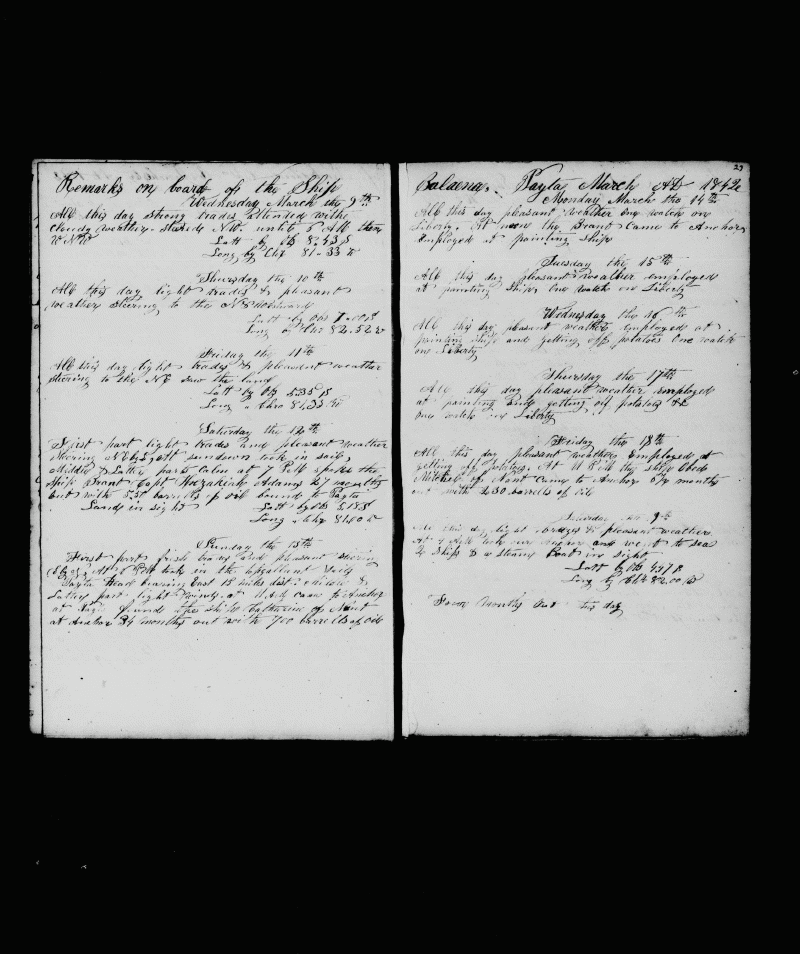 Remarks on board of the Ship
Wednesday March the 9th
All this day strong trades attended withe
cloudy weather. Steared N.W. until 5 AM then
W.N.W
Latt by Ob 8.43 S
Long by Chr 81.33 W
Thursday the 10th
All this day light trades & pleasant
weather steering to the Northward
Latt by Obs
Long Chr 82.52 W
Friday the 11th
All this day light trades & pleasant weather
steering to the NE saw the land
Latt by Ob 5.35 S
Long Chro 81.33 W
Saturday the 12th
First part light trades and pleasant weather
Steering at sundown took in sail,
Middle & Latter parts Calm at 7 P.M spoke the
Ship Grant Capt Hezakiah Adams 27 months
out with barrells of oil bound to Payta
Lands in sight Latt by Ob
Long Chr 81.00 W
Sunday the 13th
First part fresh trades and pleasant steering
At took in the topgallant Sails
Payta Head bearing East 15 miles dist. Middle &
Latter part light at came to Anchor
at found the ship Catharine of Nant
at Anchor 34 months out with 700 barrells of oil
29
Balaena. Payta March AD 1842
Monday March the 14th
All this day pleasant weather One watch on
Liberty. At noon the Grant came to Anchor
employed at painting ship
Tuesday the 15th
All this day pleasant weather employed
at painting ship One watch on Liberty
Wednesday the 16th
All this day pleasent weather employed at
painting ship and getting off potatoes One watch
on Liberty
Thursday the 17th
All this day pleasant weather employed
at painting and getting off potatoes &c
One watch on Liberty
Friday the 18th
All this day pleasant weather Employed at
getting off potatoes, At P.M the ship Obed
Mitchell of Nant Came to Anchor months
out with 230 barrells of Oil
Saturday 9th
All this day light breezes & pleasant weather
At 4 AM took our Anchor and went to sea
2 Ships & a steam Boat in sight
Latt by Ob 4.57 S
Long by Chr 82.00 W
months out this day